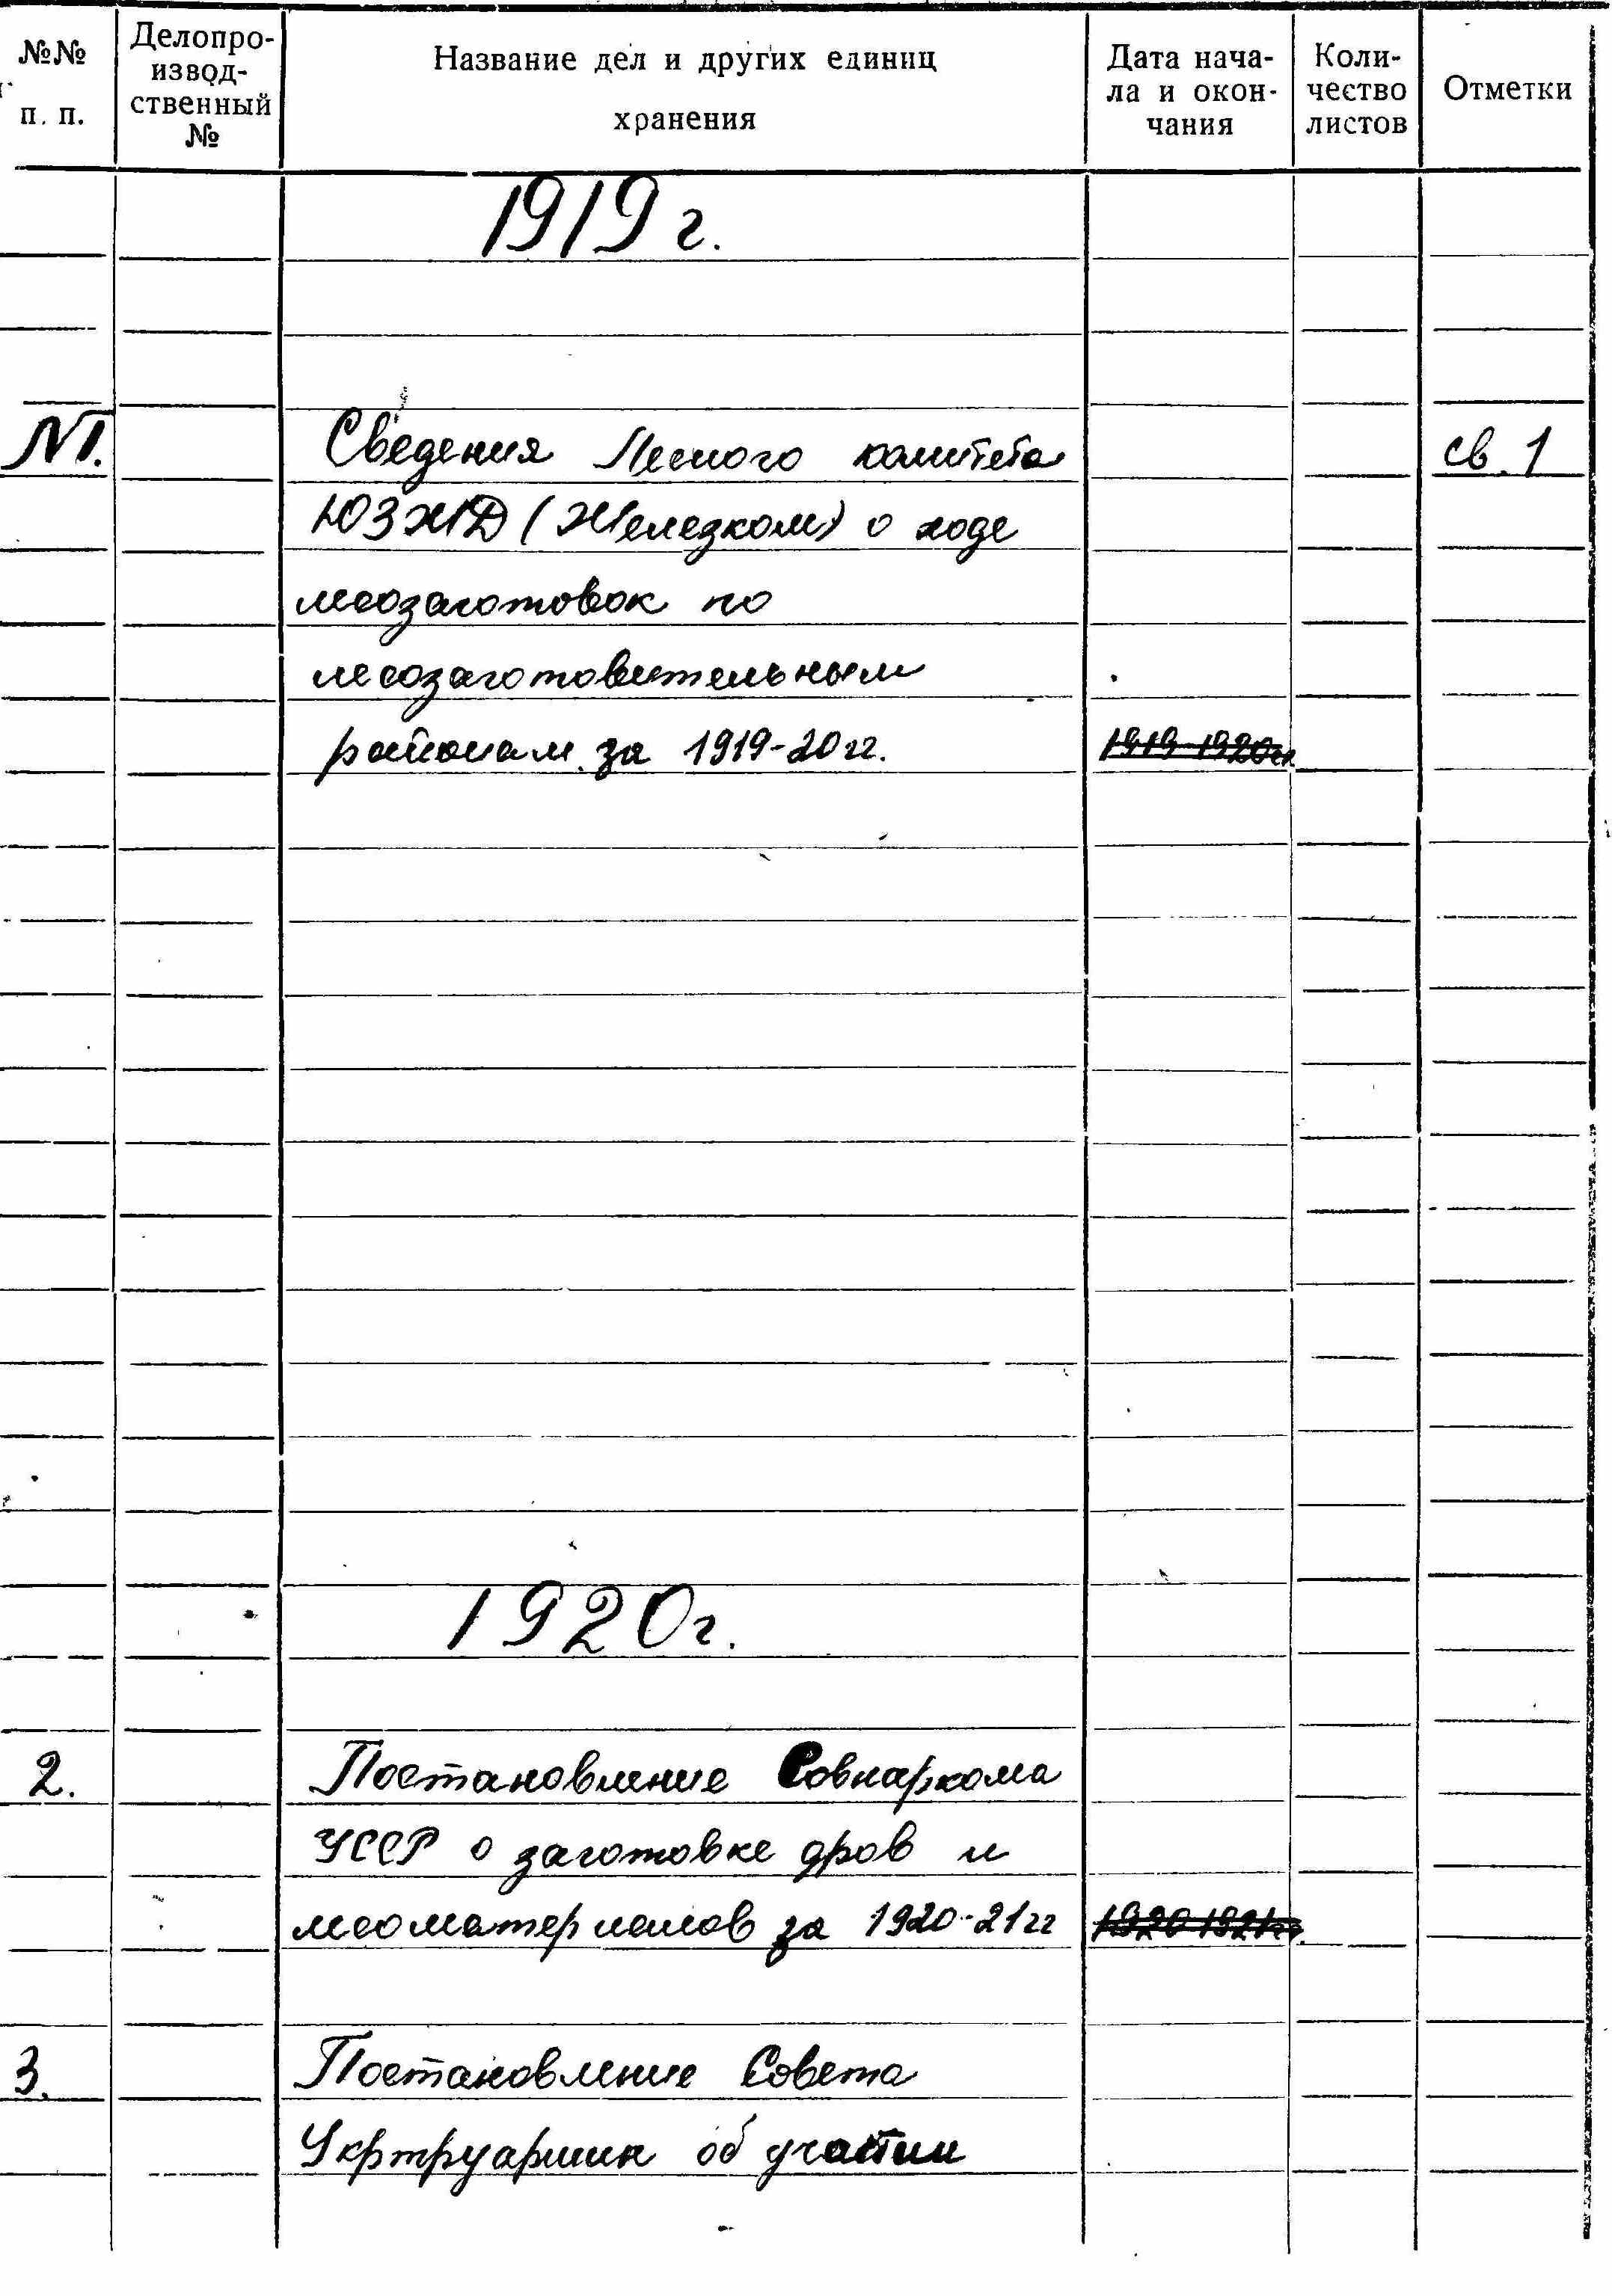 №№ п. п.
Делопро-
извод-
ственный
№
Название дел и других единиц
хранения
Дата нача-
ла и окон-
чания
Коли-
чество
листов
Отметки
1919 г.
№1. Сведения Лесного комитета св. 1
ЮЗЖД (Железком) о ходе
лесозаготовок по
лесозаготовительным
районам за 1919-20 гг. 1919-1920гг.
1920г.
2. Постановление Совнаркома
УССР о заготовке дров и
лесоматериалов за 1920-21гг 1920 1921гг.
3. Постановление Совета
Укртрудармии об участии